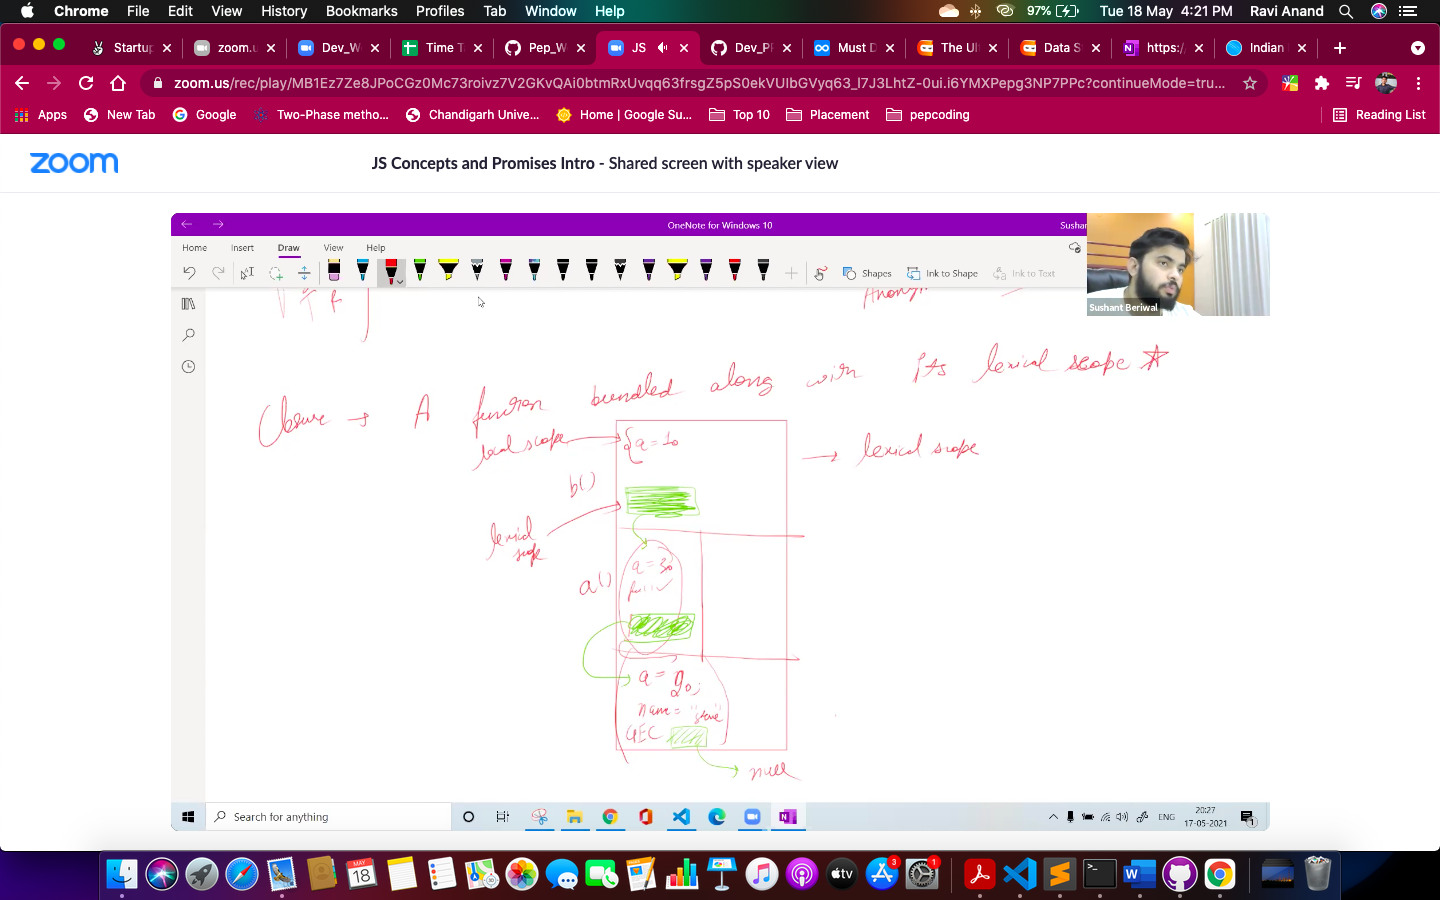 Chrome File Edit View History Bookmarks Profiles Tab Window Help 97% Tue 18 May 4:21 PM Ravi Anand
Startup zoom.u Dev_W Time T Pep_W JS Dev_P Must D The Ul Data S https:/ Indian
zoom.us/rec/play/MB1Ez7Ze8JPoCGz0Mc73roivz7V2GKvQAi0btmRxUvqq63frsgZ5pS0ekVUIbGVyq63_l7J3LhtZ-0ui.i6YMXPepg3NP7PPc?continueMode=tru...
Apps New Tab Google Two-Phase metho... Chandigarh Unive... Home | Google Su... Top 10 Placement pepcoding Reading List
zoom JS Concepts and Promises Intro - Shared screen with speaker view
OneNote for Windows 10 Sushan
Home Insert Draw View Help
Shapes Ink to Shape Ink to Text
Sushant Beriwal
Closure → A function bundled along with its lexical scope
local scope { a = 10
→ lexical scope
b()
lexical scope
a = 30
a()
a = 20;
name = "steve"
GEC
null
Search for anything ENG 20:27
17-05-2021
MAY
18 3 1
tv